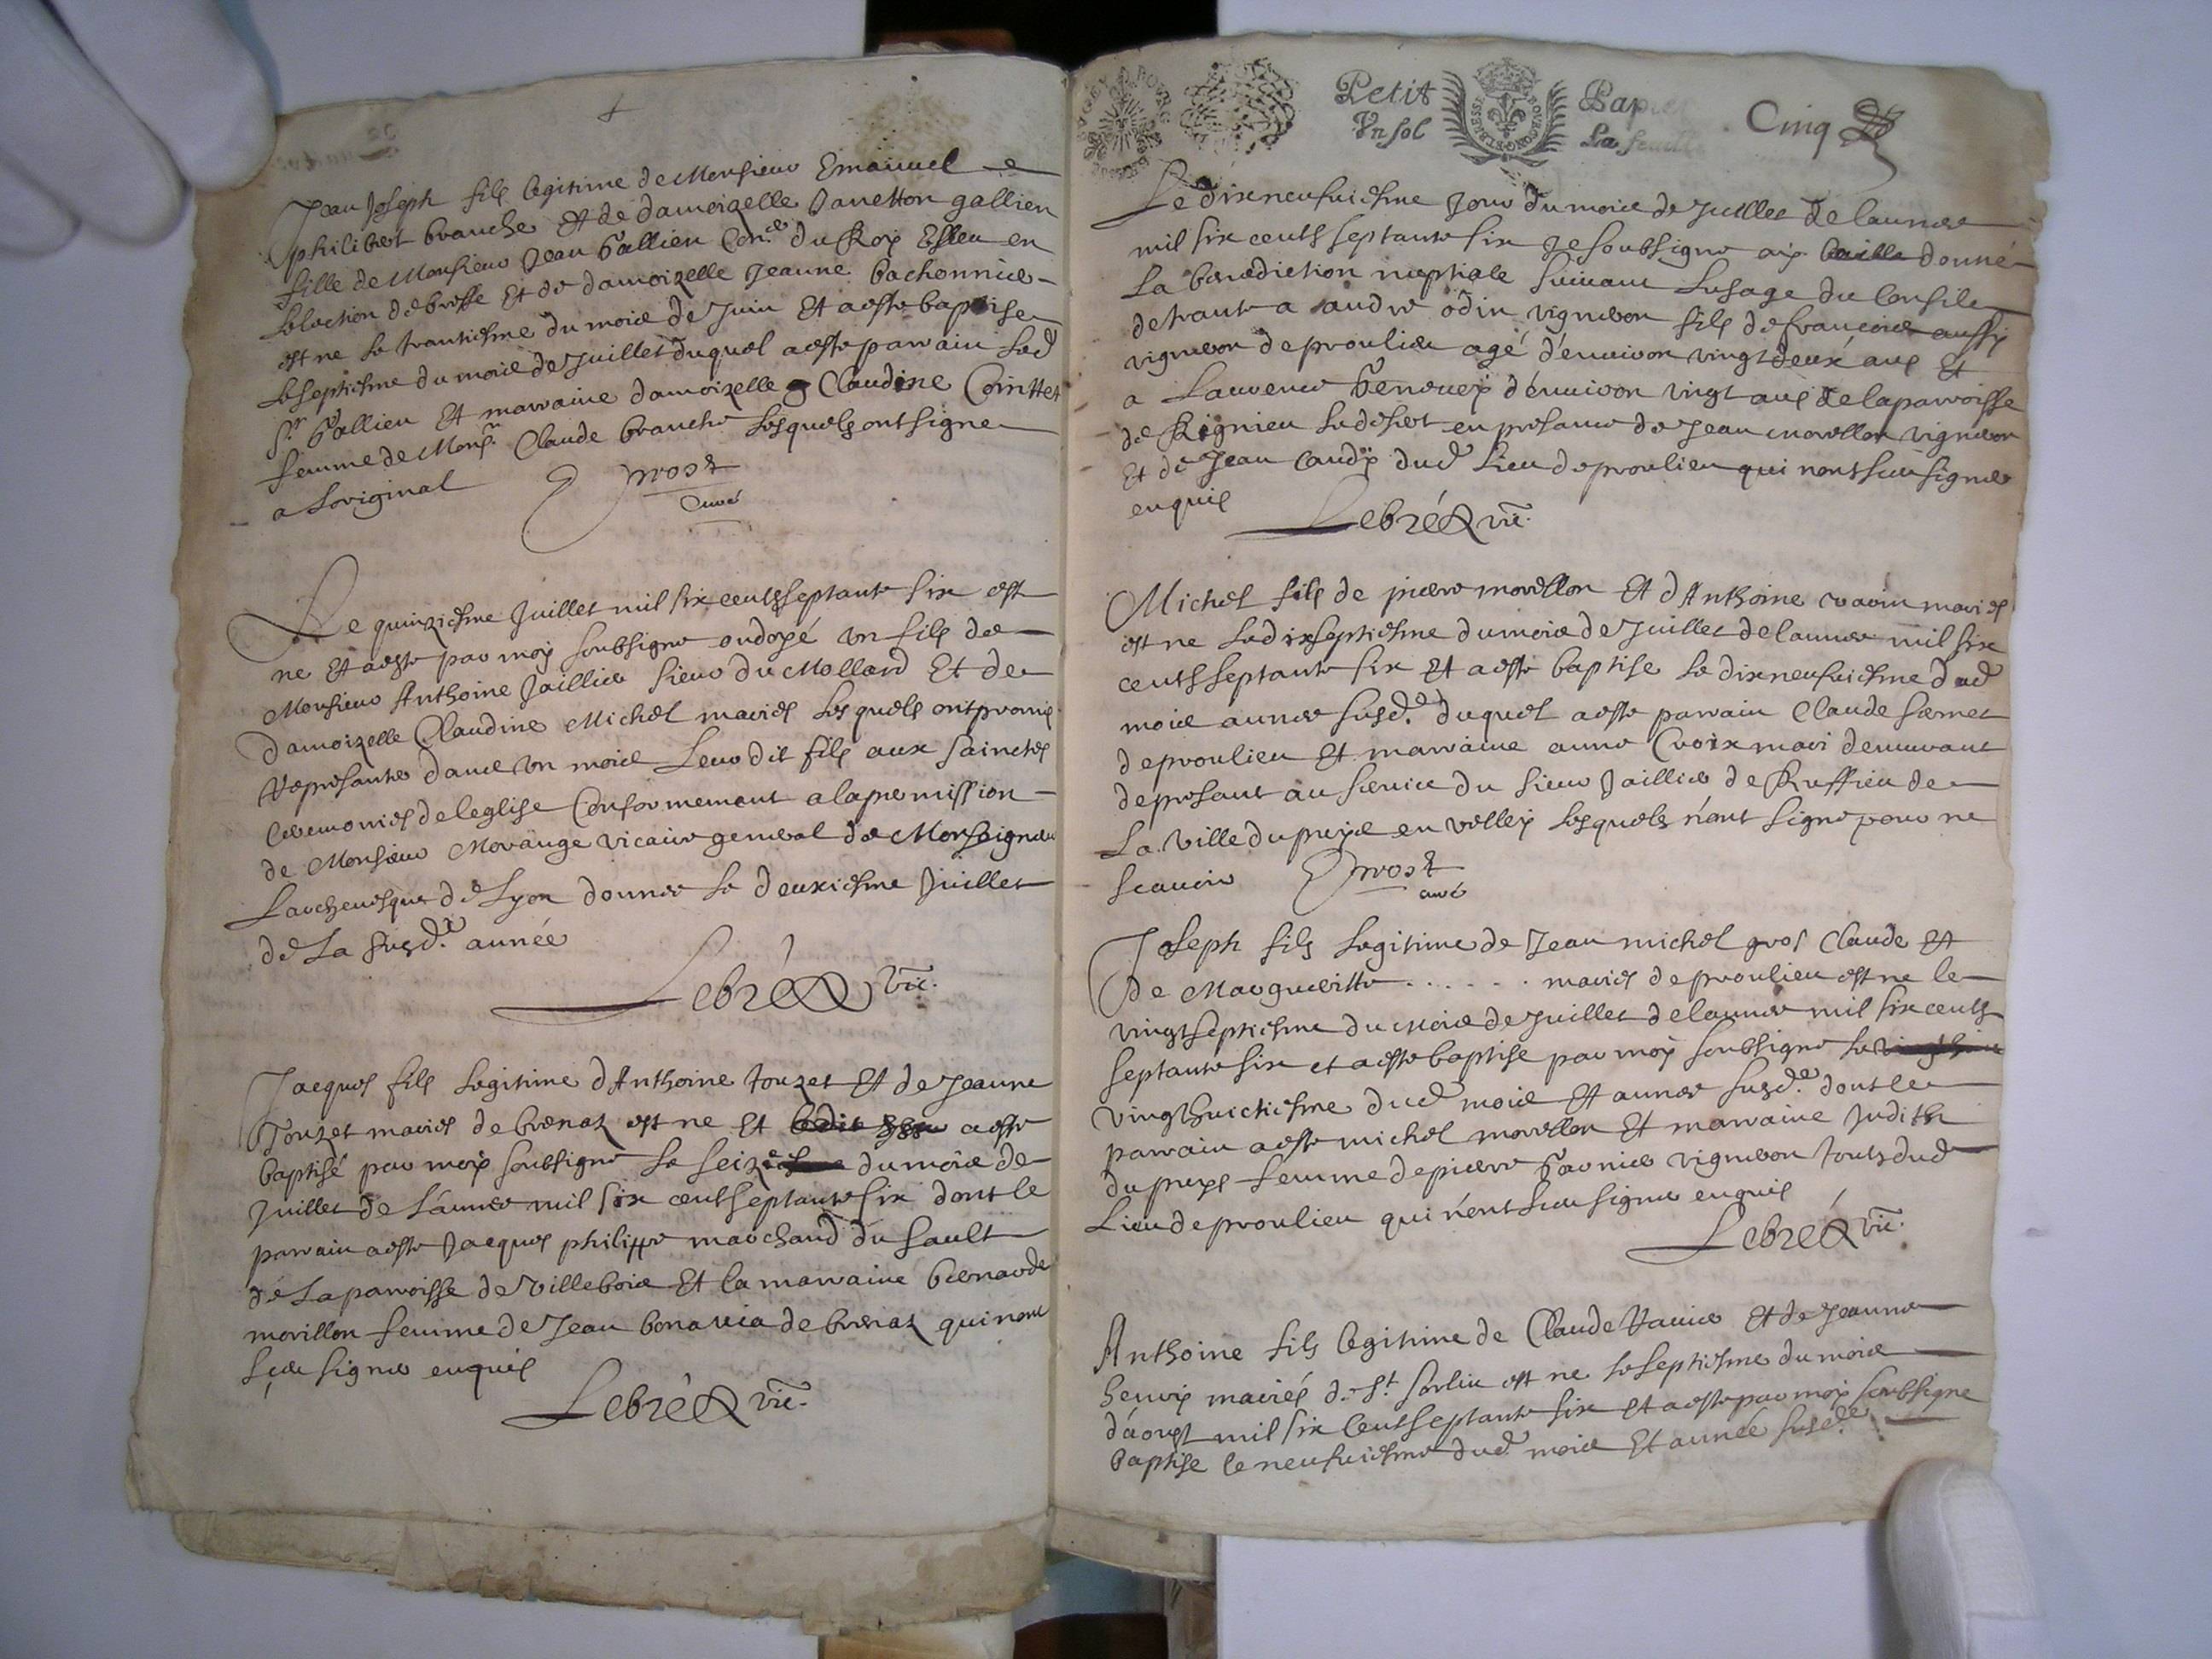 Jean Joseph fils legitime de Monsieur Emanuel
philibert branche Et de damoizelle Janetton gallien
fille de Monsieur Jean Gallien Con.er du Roy Esleu en
Leslection de bresse Et de damoizelle Jeanne bachonnier
est ne le trantiesme du mois de Juin Et a este baptise
Le septiesme du mois de Juillet duquel a este parrain led
Sr Gallien Et marraine damoizelle Claudine Cointtet
femme de Monsr. Claude branche Lesquels ont signe
a Loriginal Prost
Curé
Le quinziesme Juillet mil six cents septante six est
ne Et a este par moy soubsigne ondoyé un fils de
Monsieur Anthoine Jaillier sieur du Mollard Et de
Damoizelle Claudine Michel mariés Lesquels ont promis
Represanter dans un mois Leur dit fils aux sainctes
Ceremonies de leglise Conformement a la permission
de Monsieur Morange vicaire general de Monseigneur
Larchevesque de Lyon donnee le deuxiesme Juillet
de La susd.e année
Lebré vic.
Jacques fils legitime d'Anthoine touzet Et de Jeanne
Touzet mariés de brenaz est ne Et a este
baptisé par moy soubsigne le seize du mois de
Juillet de L'annee mil six cent septante six dont le
parrain a este Jacques philippe marchand du sault
de La parroisse de Villebois Et la marraine bernarde
morillon femme de Jean bonavia de brenaz qui nont
sçeu signer enquis
Lebré vic.
Petit Papier
Un sol La feuille
Cinq
BOURG EN BRESSE
Le dixneufviesme Jour du mois de Juillet de lannee
mil six cents septante six Je soubsigne ay donné
La benediction nuptiale suivant Lusage du Consile
de trante a andre odin vigneron fils de francois aussy
vigneron de proulieu agé d'environ vingt deux ans Et
a Laurence Genevey d'environ vingt ans de la parroisse
de Rignieu Le desert en presance de Jean morellon vigneron
Et de Jean Caudy dud Lieu de proulieu qui nont sceu signer
enquis
Lebré vic.
Michel fils de pierre morellon Et d'Anthoine mariés
est ne Le dixseptiesme du mois de Juillet de lannee mil six
cents septante six Et a este baptise le dixneufviesme dud
mois annee susd.e duquel a este parrain Claude
de proulieu Et marraine anne Croix mari demeurant
de presant au service du sieur Jaillier de Ruffieu de
La ville du puys en velley Lesquels n'ont signe pour ne
scavoir Prost
curé
Joseph fils Legitime de Jean michel gros Claude Et
de Margueritte . . . . . . mariés de proulieu est ne le
vingt septiesme du Mois de Juillet de lannee mil six cents
septante six et a este baptise par moy soubsigne le
vingt huictiesme dud mois Et annee susd.e dont le
parrain a este michel morellon Et marraine Judith
du puys femme de pierre Garnier vigneron touts dud
Lieu de proulieu qui n'ont sceu signer enquis
Lebré vic.
Anthoine fils legitime de Claude Ravier Et de Jeanne
henry mariés de St. sorlin est ne le septiesme du mois
d'aoust mil six Cent septante six Et a este par moy soubsigne
baptise le neufviesme dud mois Et année susd.e